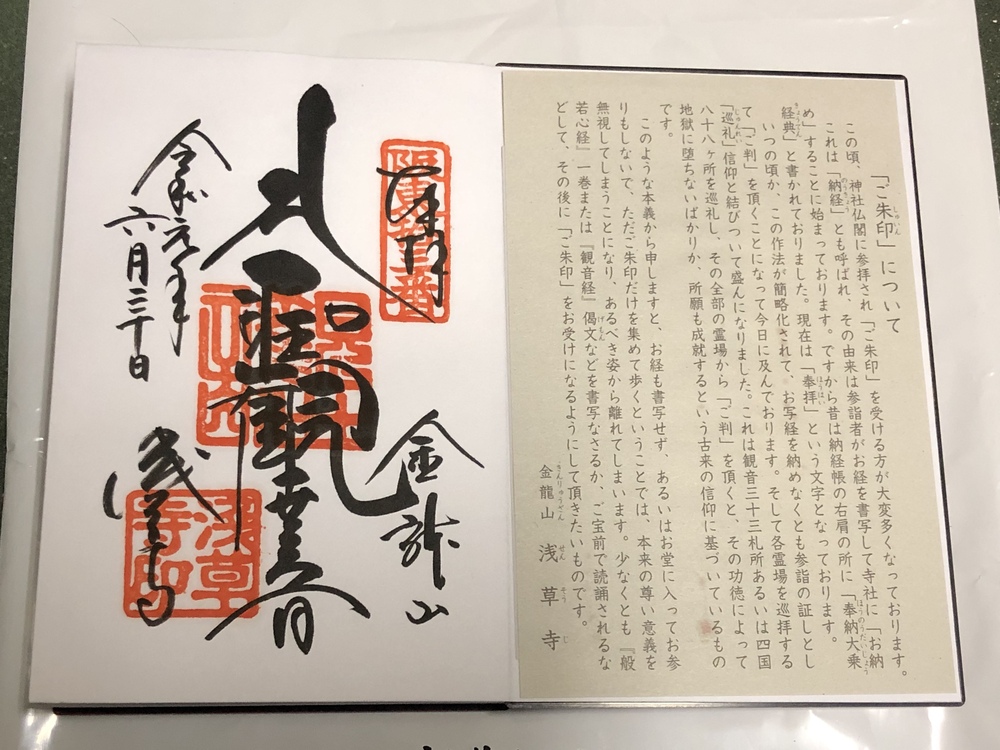 「ご朱印」について
この頃、神社仏閣に参拝され「ご朱印」を受ける方が大変多くなっております。
これは「納経」とも呼ばれ、その由来は参詣者がお経を書写して寺社に「お納
め」することに始まっております。ですから昔は納経帳の右肩の所に「奉納大乗
経典」と書かれておりました。現在は「奉拝」という文字となっております。
いつの頃か、この作法が簡略化されて、お写経を納めなくとも参詣の証しとし
て「ご判」を頂くことになって今日に及んでおります。そして各霊場を巡拝する
「巡礼」信仰と結びついて盛んになりました。これは観音三十三札所あるいは四国
八十八ヶ所を巡礼し、その全部の霊場から「ご判」を頂くと、その功徳によって
地獄に堕ちないばかりか、所願も成就するという古来の信仰に基づいているもの
です。
このような本義から申しますと、お経も書写せず、あるいはお堂に入ってお参
りもしないで、ただご朱印だけを集めて歩くということでは、本来の尊い意義を
無視してしまうことになり、あるべき姿から離れてしまいます。少なくとも『般
若心経』一巻または『観音経』偈文などを書写なさるか、ご宝前で読誦されるな
どして、その後に「ご朱印」をお受けになるようにして頂きたいものです。
金龍山 浅草寺
奉拝
金龍山
令和元年
六月三十日
浅草寺